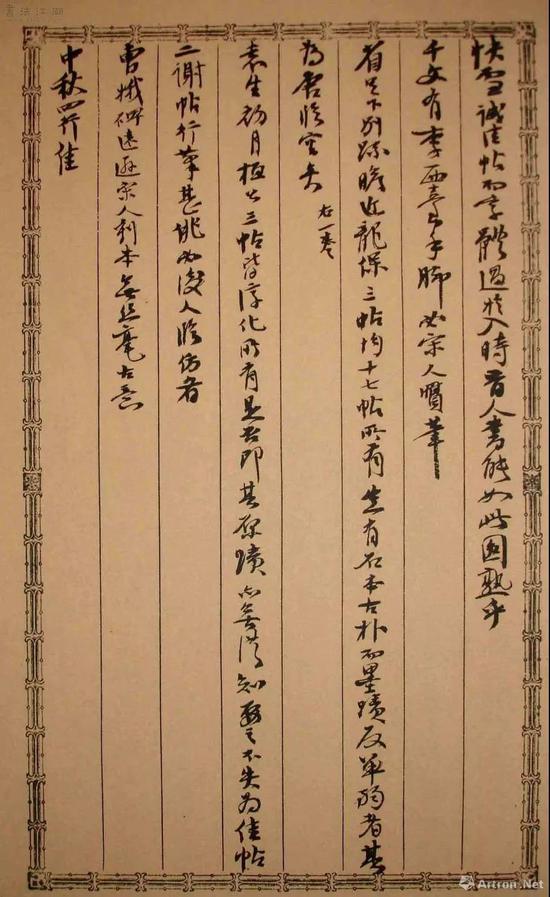 書法江湖
快雪誠佳帖而字體過於入時晉人書能如此圓熟乎
千文有李西臺手脚必宋人贋筆
省足下別疏瞻近龍保三帖均十七帖所有豈有石本古朴而墨蹟反單弱者其
為唐臨矣 右一卷
袁生初月極三帖皆淳化所有是否即其原蹟亦無從知要之不失為佳帖
二謝帖行筆甚佻必後人臨仿者
曹娥碑遠遜宋人刻本無絲毫古意
中秋四行佳
Artron.Net